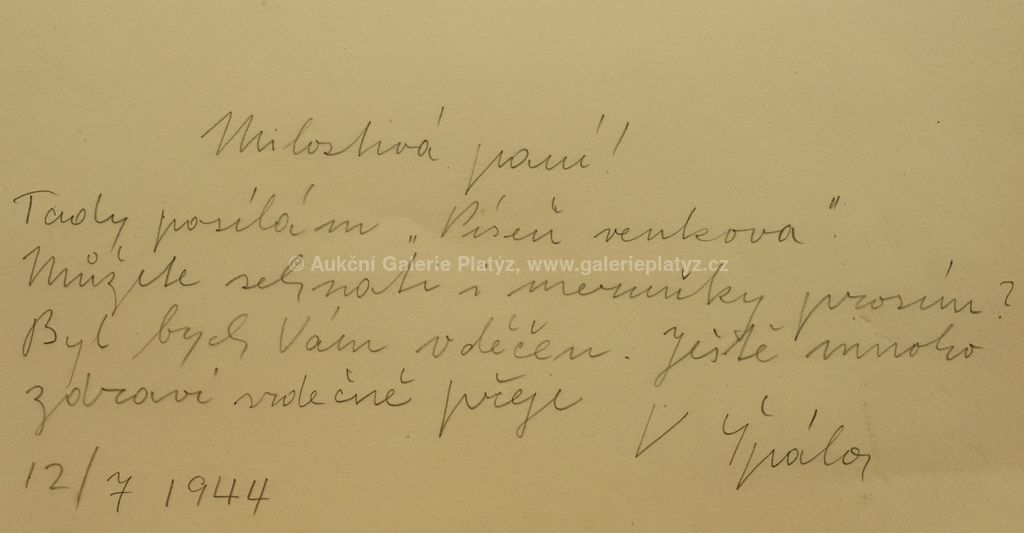 Milostivá paní!
Tady posílám „Píseň venkova".
© Aukční Galerie Platýz, www.galerieplatyz.cz
Můžete sehnati i meruňky prosím?
Byl bych Vám vděčen. Ještě mnoho
zdraví srdečně přeje
V Špála
12/7 1944